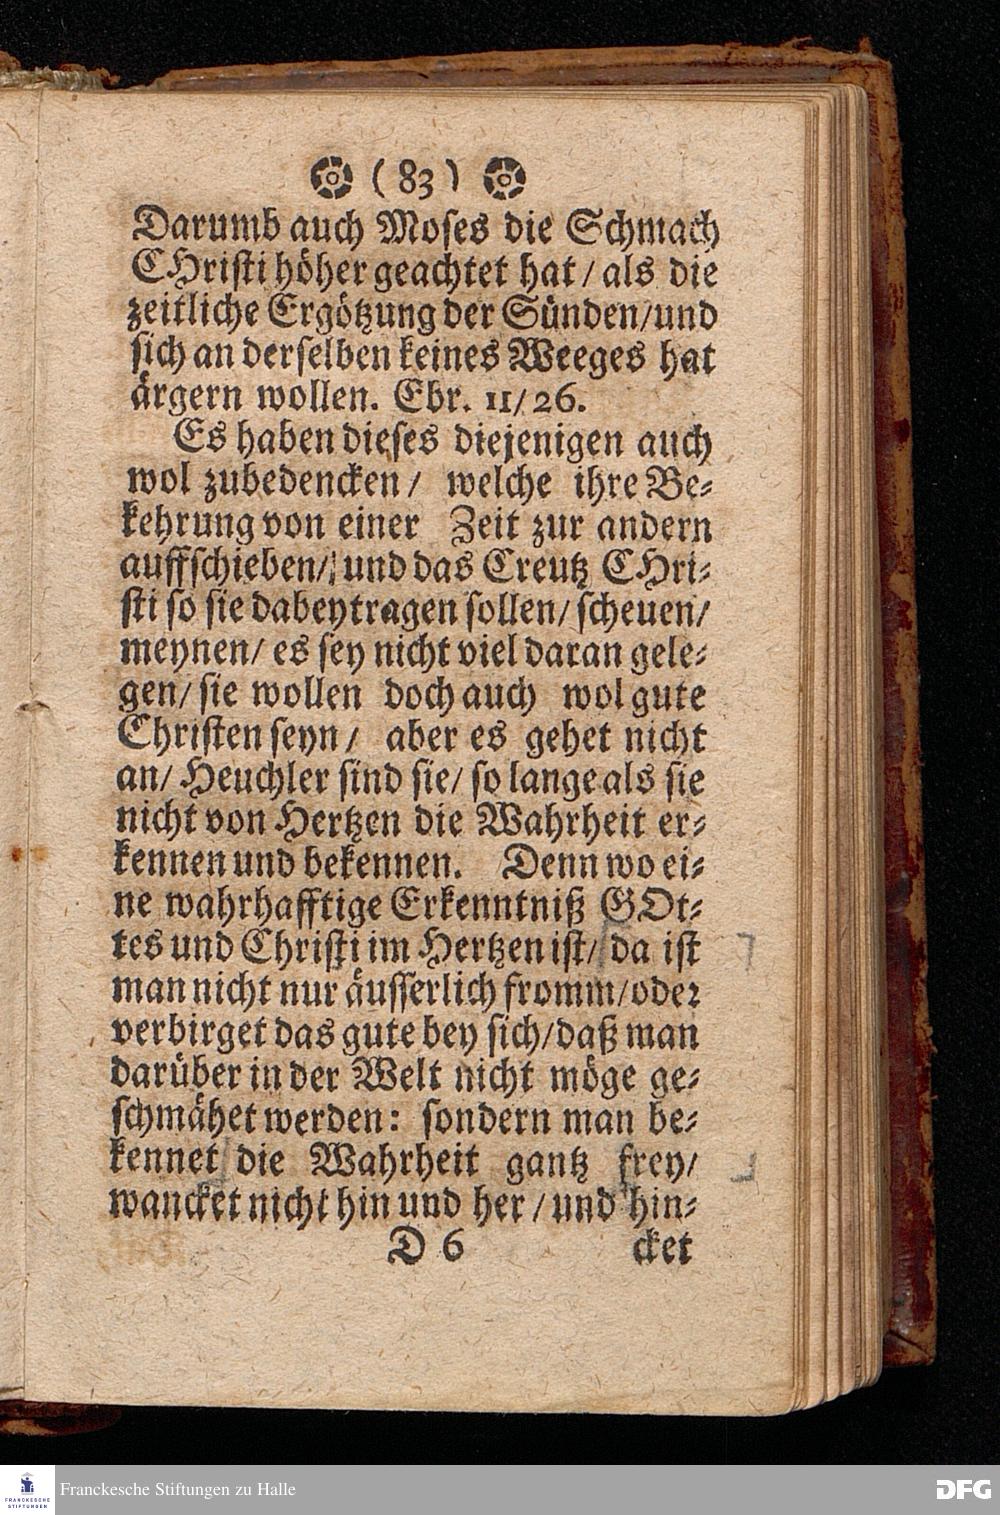 ( 83 )
Darumb auch Moses die Schmach
CHristi höher geachtet hat / als die
zeitliche Ergötzung der Sünden/und
sich an derselben keines Weeges hat
ärgern wollen. Ebr. 11/26.
Es haben dieses diejenigen auch
wol zubedencken / welche ihre Be-
kehrung von einer Zeit zur andern
auffschieben/ und das Creutz CHri-
sti so sie dabey tragen sollen/ scheuen/
meynen/ es sey nicht viel daran gele-
gen/ sie wollen doch auch wol gute
Christen seyn / aber es gehet nicht
an/ Heuchler sind sie/ so lange als sie
nicht von Hertzen die Wahrheit er-
kennen und bekennen. Denn wo ei-
ne wahrhafftige Erkenntniß GOt-
tes und Christi im Hertzen ist/ da ist
man nicht nur äusserlich fromm/oder
verbirget das gute bey sich/daß man
darüber in der Welt nicht möge ge-
schmähet werden: sondern man be-
kennet die Wahrheit gantz frey/
wancket nicht hin und her / und hin-
D 6 cket
FRANCKESCHE
STIFTUNGEN
Franckesche Stiftungen zu Halle
DFG